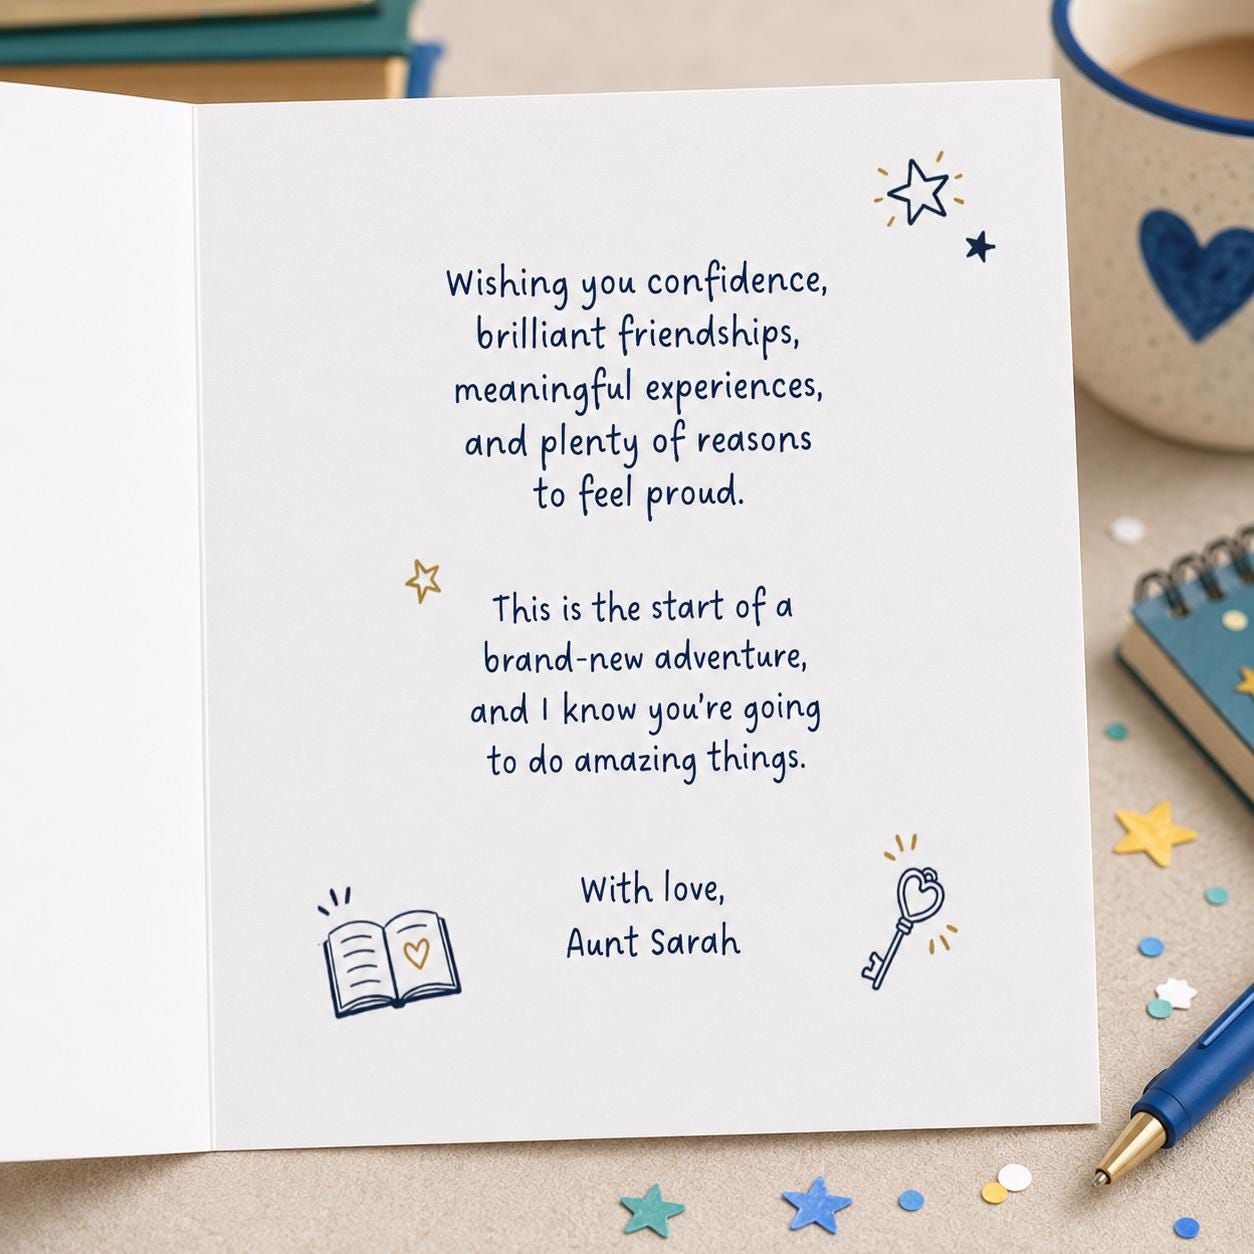 Wishing you confidence,
brilliant friendships,
meaningful experiences,
and plenty of reasons
to feel proud.
This is the start of a
brand-new adventure,
and I know you're going
to do amazing things.
With love,
Aunt Sarah